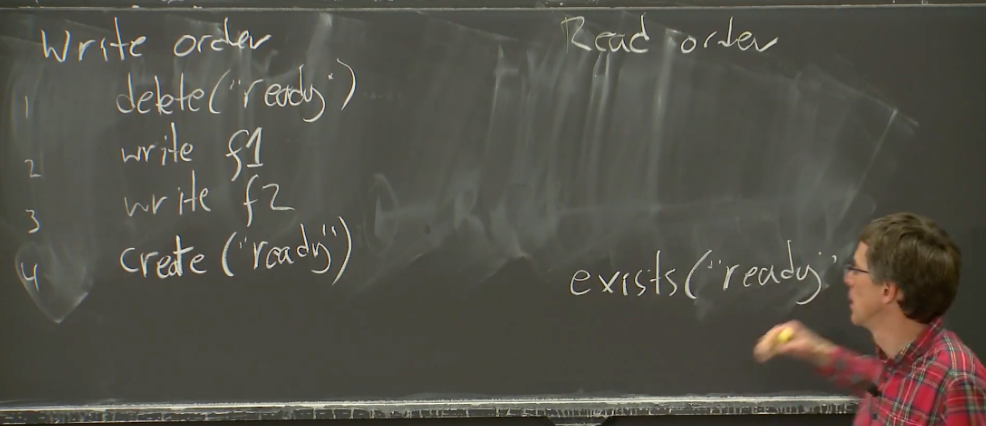 Write order
1 delete("ready")
2 write f1
3 write f2
4 create("ready")
Read order
exists("ready"